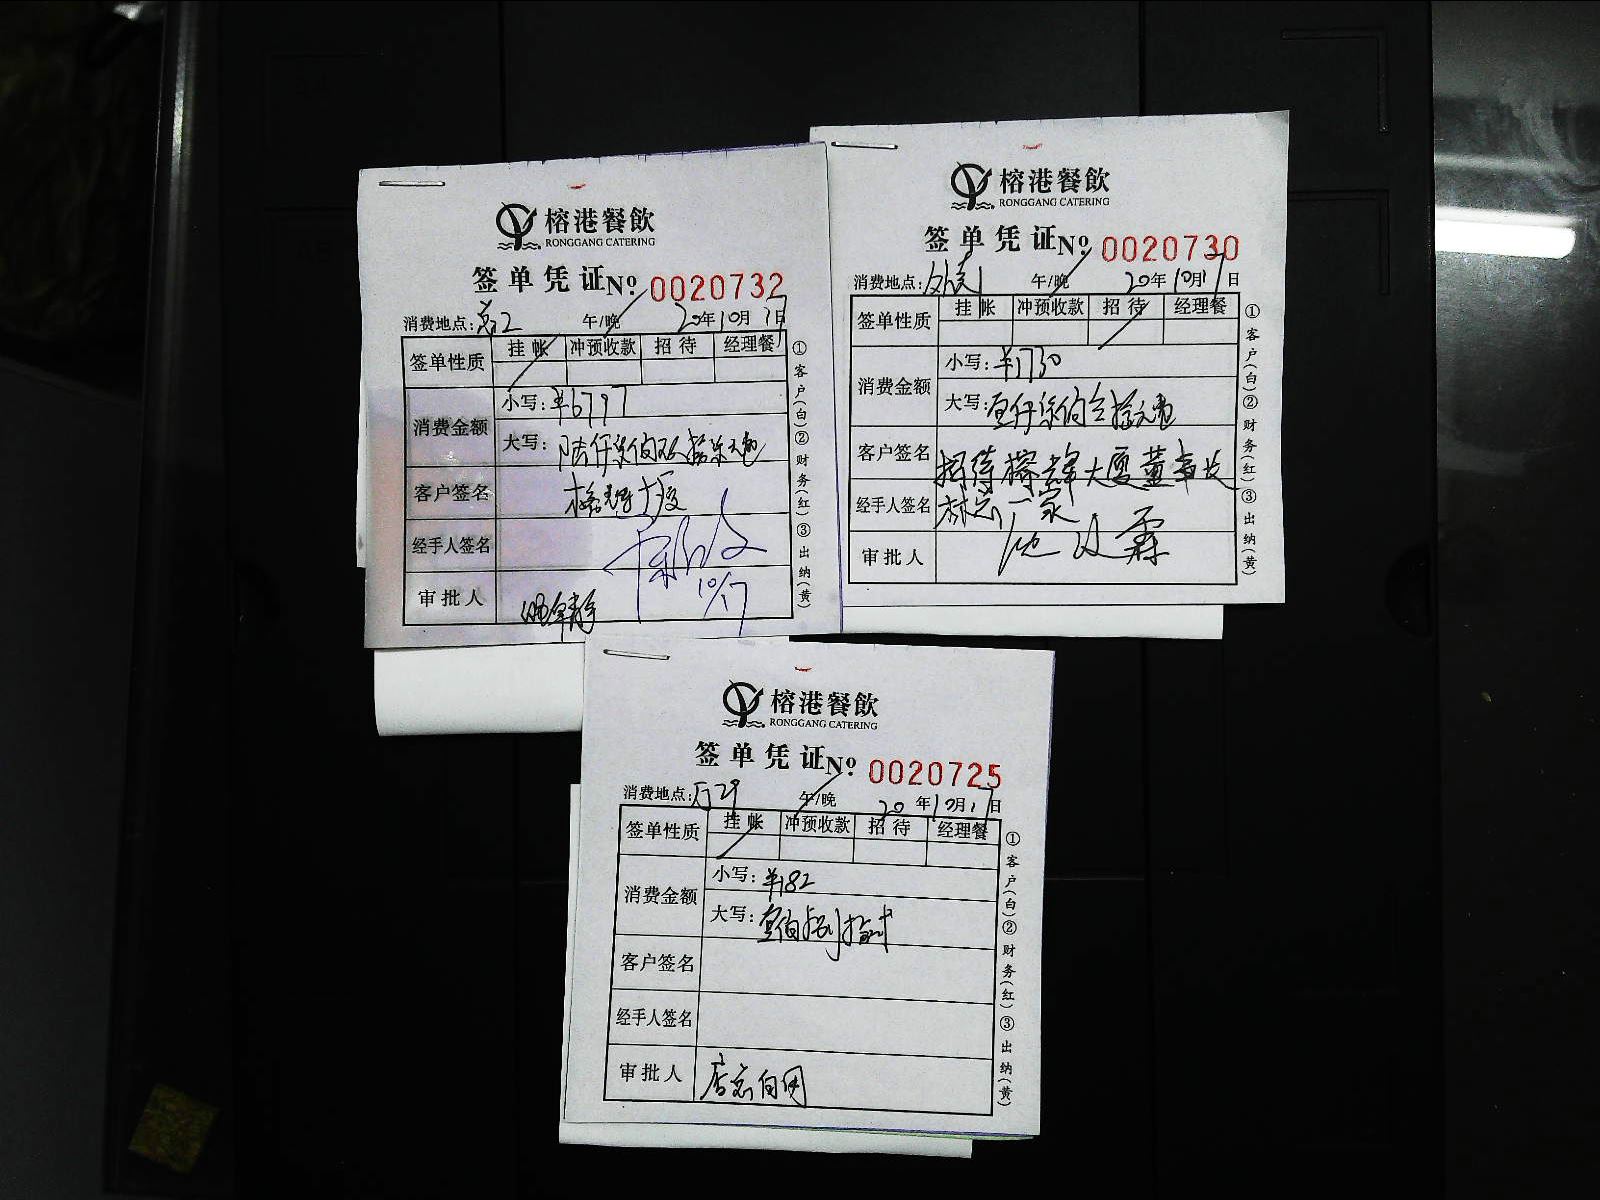 榕港餐飲
RONGGANG CATERING
签单凭证 № 0020732
消费地点: 午/晚 20年10月17日
签单性质 挂帐 冲预收款 招待 经理餐
消费金额 小写: ¥6797
大写: 陆仟柒佰玖拾柒元
客户签名
经手人签名
10/17
审批人
①客户(白)②财务(红)③出纳(黄)
榕港餐飲
RONGGANG CATERING
签单凭证 № 0020730
消费地点: 午/晚 20年10月17日
签单性质 挂帐 冲预收款 招待 经理餐
消费金额 小写: ¥1730
大写: 壹仟柒佰叁拾元
客户签名 招待榕辉大厦董事长
经手人签名 林总一家
审批人
①客户(白)②财务(红)③出纳(黄)
榕港餐飲
RONGGANG CATERING
签单凭证 № 0020725
消费地点: 厅29 午/晚 20年10月17日
签单性质 挂帐 冲预收款 招待 经理餐
消费金额 小写: ¥182
大写: 壹佰捌拾贰
客户签名
经手人签名
审批人
①客户(白)②财务(红)③出纳(黄)